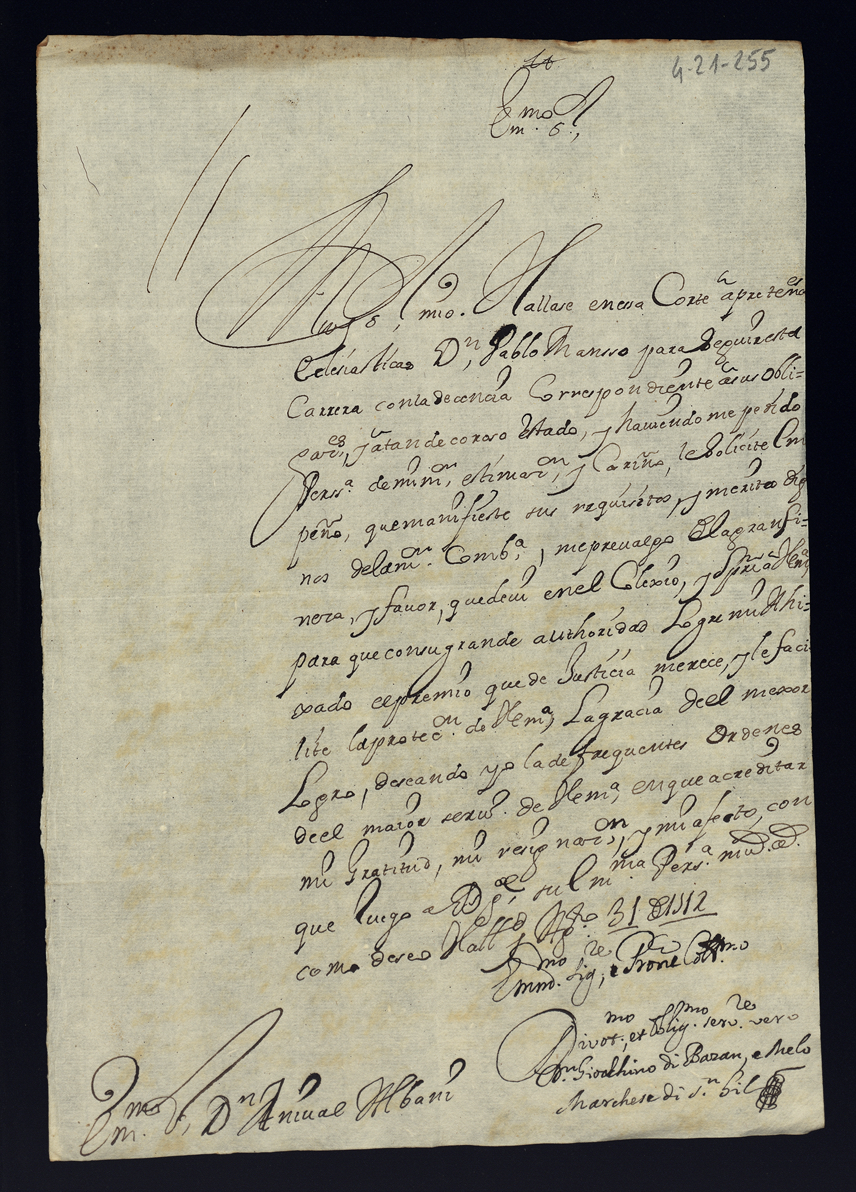 4-21-255
Emmo. Sr.,
Muy Sr. mio. Hallase en essa Corte à pretens.es
Eclesiasticas Dn. Pablo Mansso para seguir esta
Carrera con la decencia Correspondiente à sus obli=
gacio.es, y à tan decoroso Estado, y haviendome pedido
Perss.a de mi m. estimacion, y Cariño, le solicite Em
peño, que manifieste sus requisitos, y meritos dig
nos de la m. Comb.a, me prevalgo de la gran fi=
neza, y favor, que devi en el Colexio, y
para que con su grande authoridad Logre mi Ahi=
xado el premio que de Justicia merece, y le faci
lite la protec.on de V Em.a, La gracia de el mexor
Logro, deseando yo la de frequentes Ordenes
de el maior serv.o de V Em.a, en que acreditar
mi Gratitud, mi resignacion, y mi afecto, con
que Ruego a Ds. gde. su Em.ma Pers.a m.s a.s
como deseo Vall.d y Ag.to 31 de 1712
Emmo. Sig.re, e Prone Col.mo
Divot.mo, et oblig.mo serv.re vero
Dn. Giocchino di Bazan, e Melo
Marchese di S.n Gil
Emmo. Sr., Dn. Anival Albani